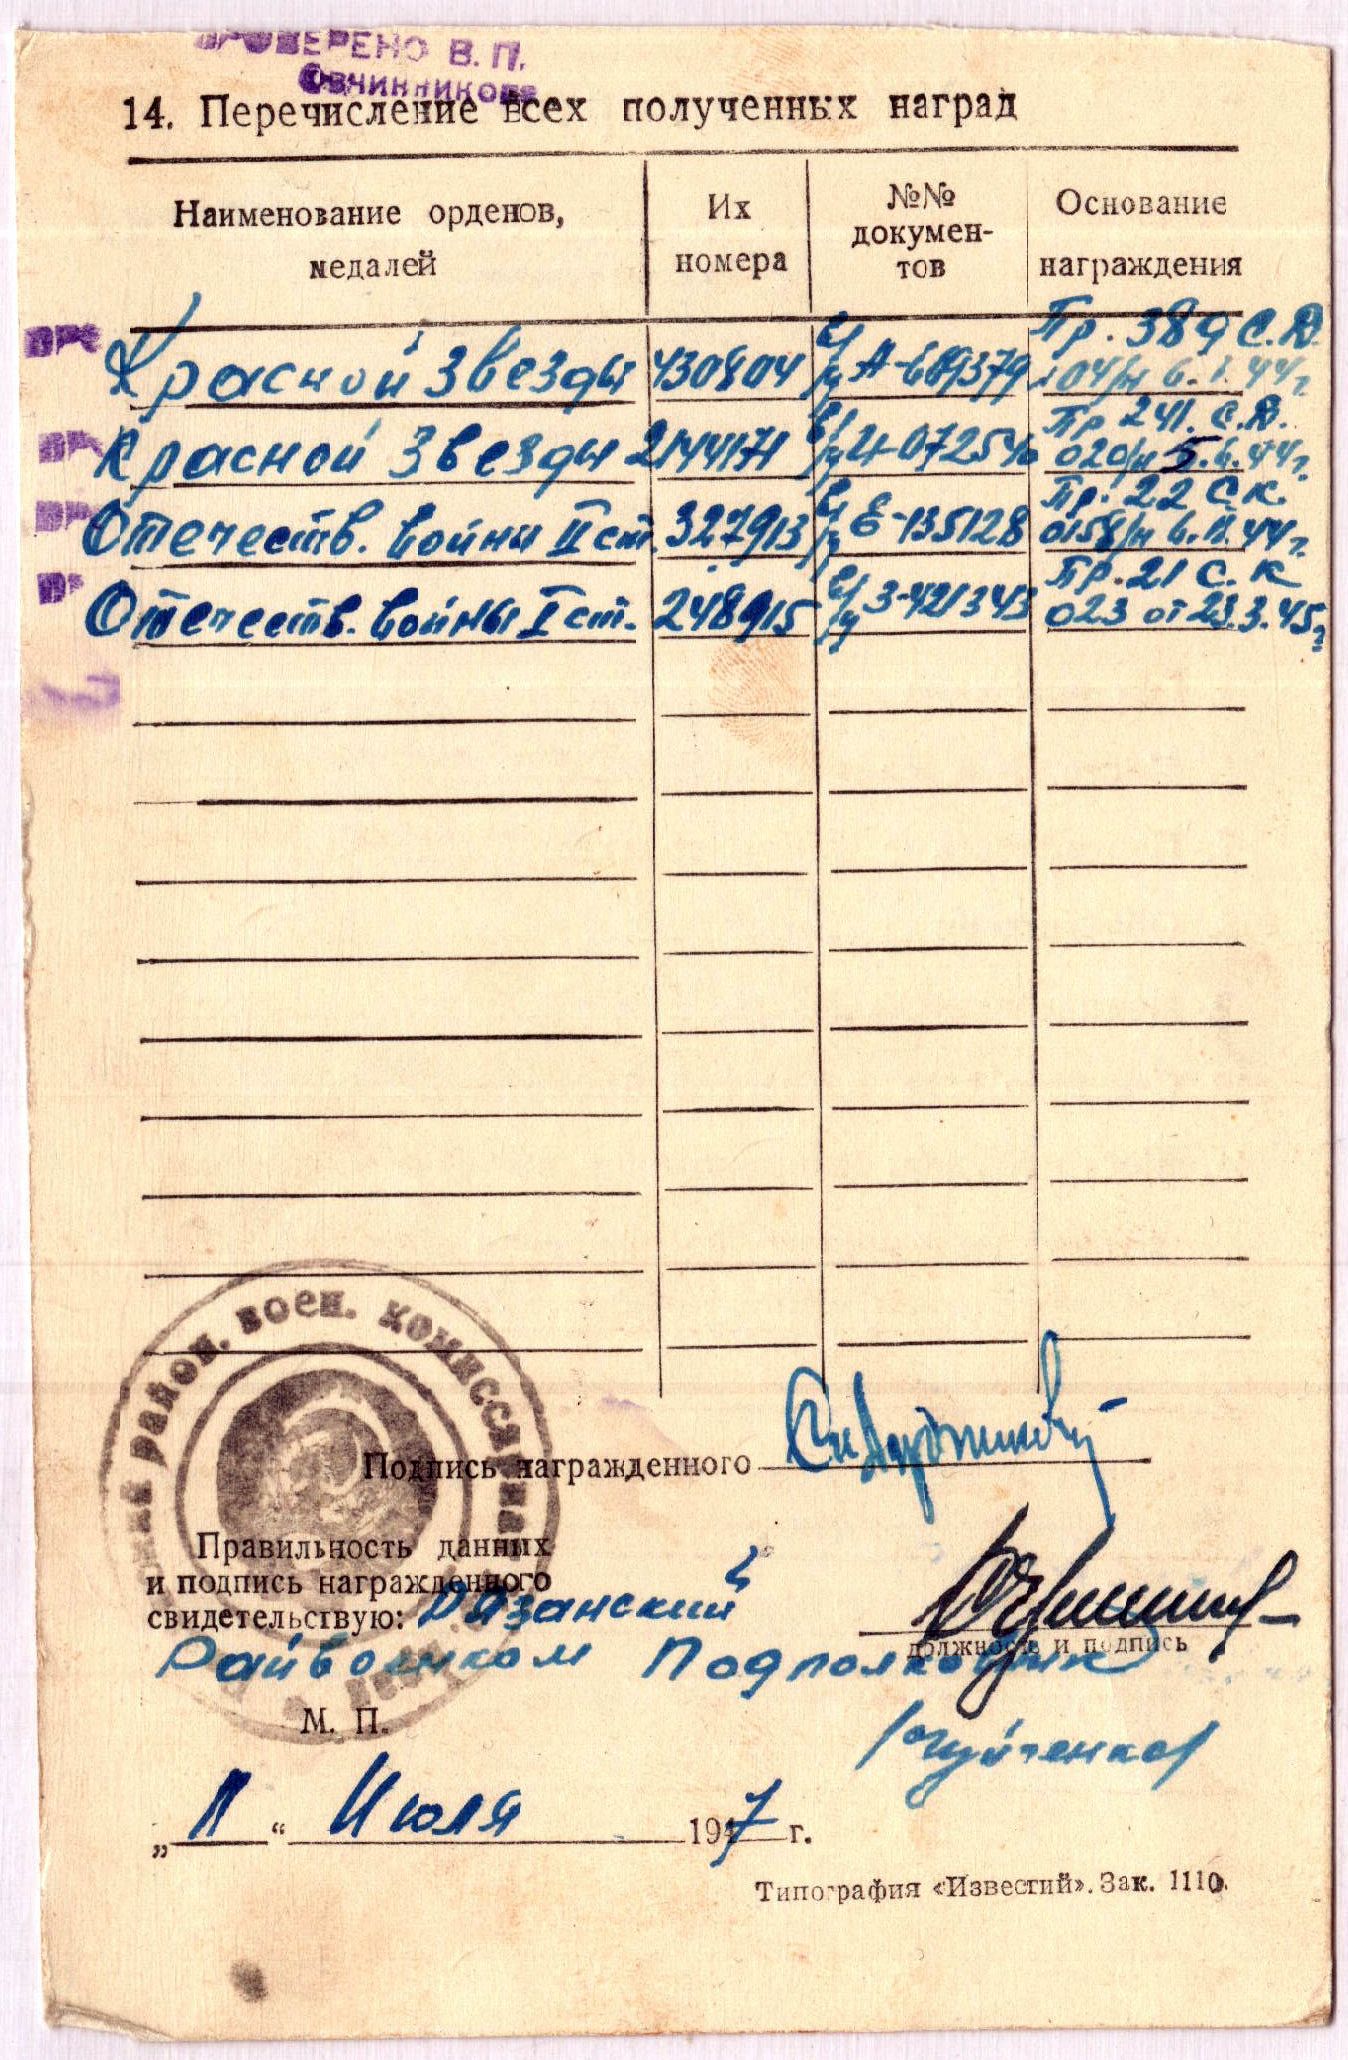 ПРОВЕРЕНО В. П.
Овчинникова
14. Перечисление всех полученных наград
Наименование орденов, медалей
Их номера
№№ документов
Основание награждения
Красной Звезды 430804 А-689379 Пр. 389 С.Д. 04/н 6.1.44г.
Красной Звезды 2144171 Пр 241. С.Д. 020/н 5.6.44г.
Отечеств. войны II ст. 327913 Е-135128 Пр. 22 С.К. 0158/н
Отечеств. войны I ст. 248915 З-421343 Пр. 21 С.К 023 от 23.3.45г
район. воен. комиссариат
Подпись награжденного
Правильность данных
и подпись награжденного
свидетельствую: Рязанский
должность и подпись
Райвоенком Подполковник
М. П.
„11“ Июля 1947 г.
Типография «Известий». Зак. 1110.